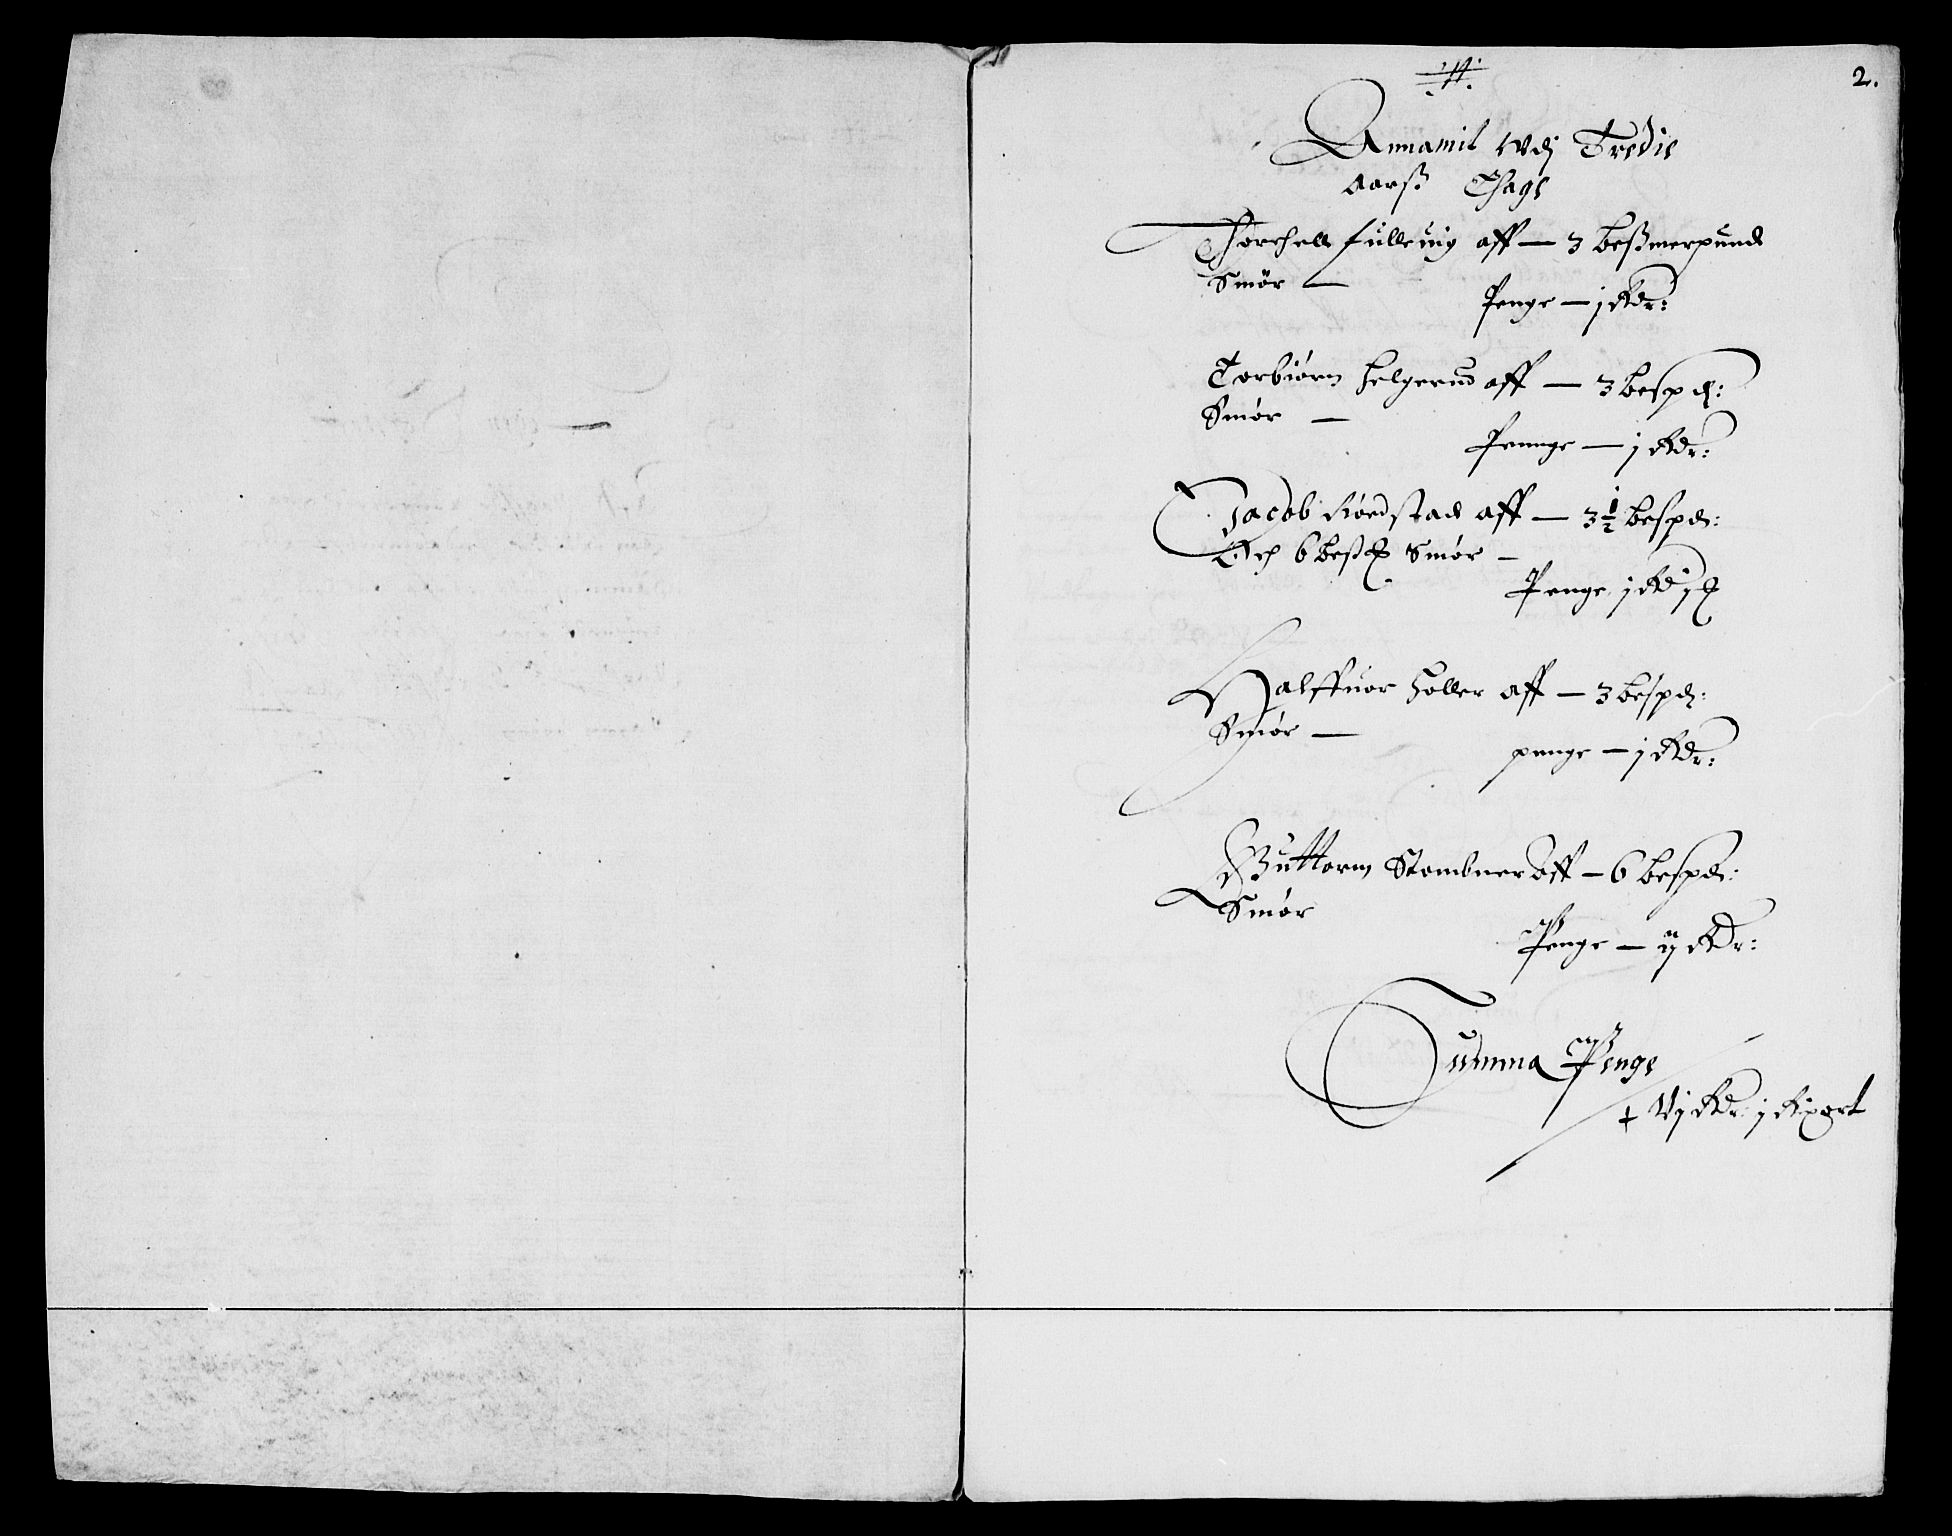 2.
Annamit wdj Tredie
Aarß Thage
Torchell fulluig aff — 3 beßmerpund
Smör —
Penge — j Rdr:
Torbiörn Helgerud aff — 3 bespd:
Smør —
Pennge — j Rdr:
Jacob fiördstad aff — 3½ bespd:
Och 6 beß Smør —
Penge j Rd j
Halffuor Holler aff — 3 bespd:
Smør —
penge — j Rdr:
Guttorm Stombner aff — 6 bespd:
Smør
Penge — ij Rdr:
Summa Penge
+ Vj Rdr: j Rixort